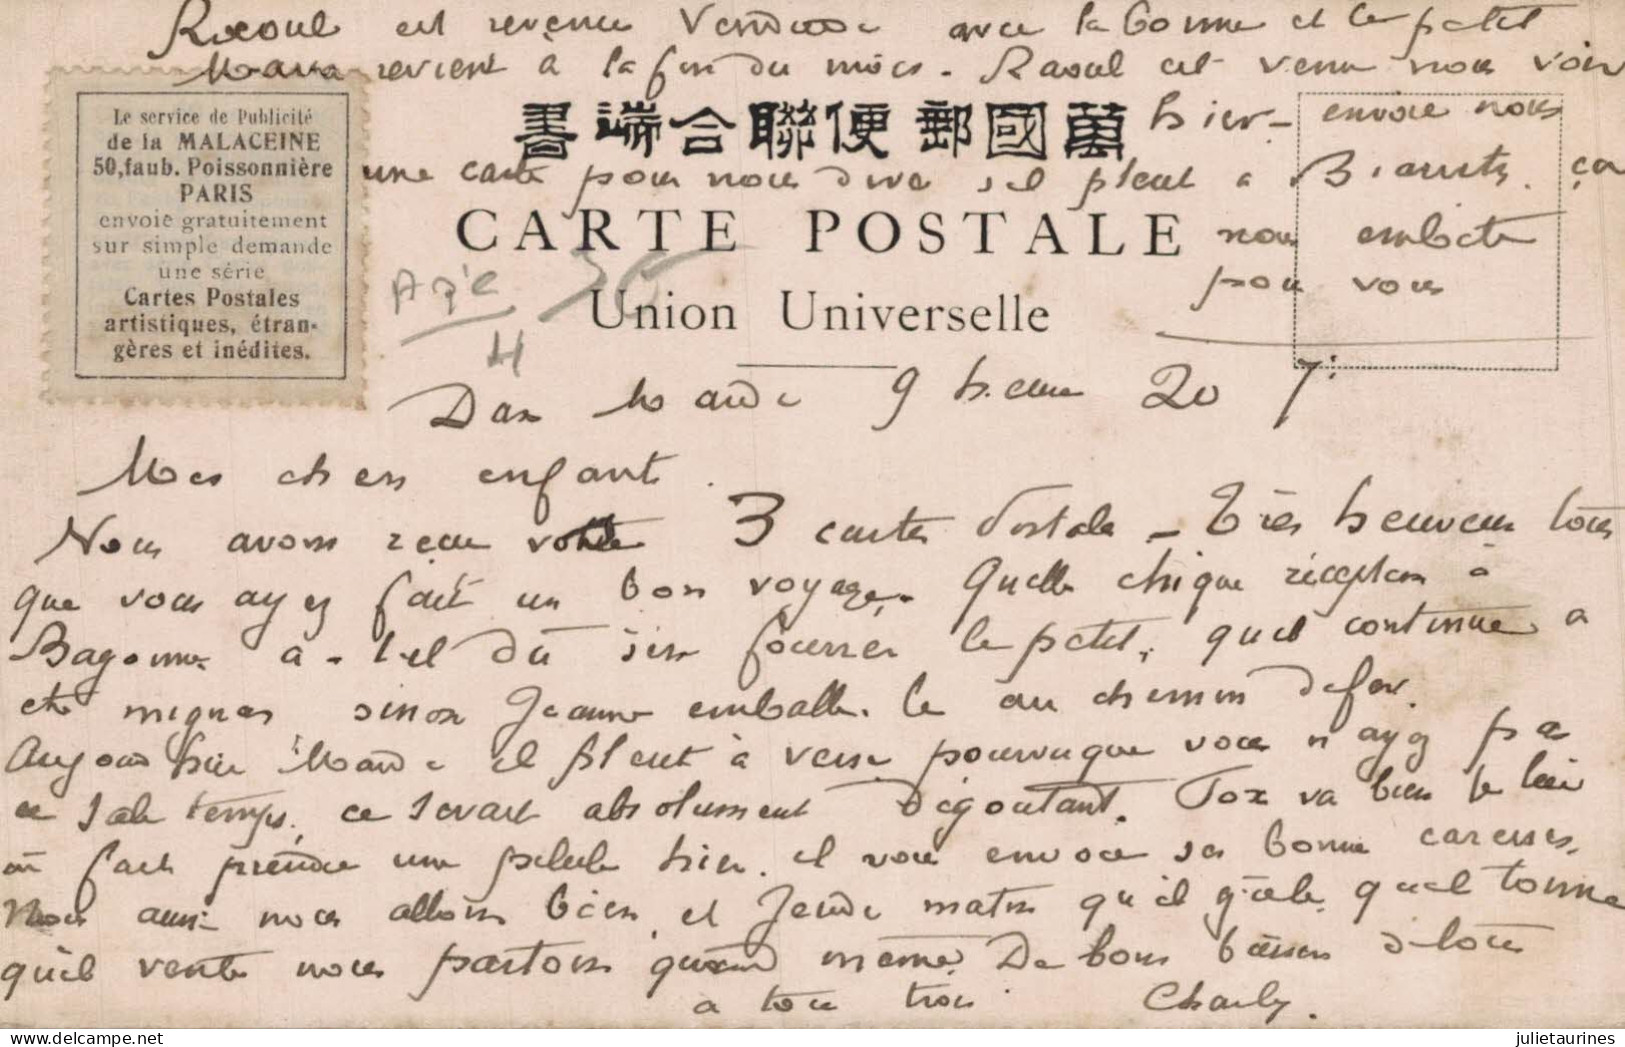 Raoul est revenu Vendredi avec la bonne et le petit
revient à la fin du mois. Raoul est venu nous voir
hier - envoie nous
une carte pour nous dire s'il pleut à Biarritz. ça
nous embete
pour vous
Le service de Publicité
de la MALACEINE
50, faub. Poissonnière
PARIS
envoie gratuitement
sur simple demande
une série
Cartes Postales
artistiques, étran-
gères et inédites.
萬國郵便聯合端書
CARTE POSTALE
Union Universelle
Dax Mardi 9 heure 20
Mes chers enfants.
Nous avons reçu 3 cartes Postale - Très heureux tous
que vous ayez fait un bon voyage. Quelle chique réception à
Bayonne a-t-el dû s'en fourrer le petit, qu'il continue a
etre mignon sinon Jeanne emballe le au chemin de fer.
Aujourd'hui Mardi il pleut à verse pourvu que vous n'ayez pas
ce sale temps, ce serait absolument dégoutant. Tox va bien je lui
ai fait prendre une pilule hier. il vous envoie ses bonne caresses.
Nous aussi nous allons bien et Jeudi matin qu'il gèle, qu'il tonne
qu'il vente nous partons quand même. De bons baisers à tous
a tous trois. Charly.
julietaurines